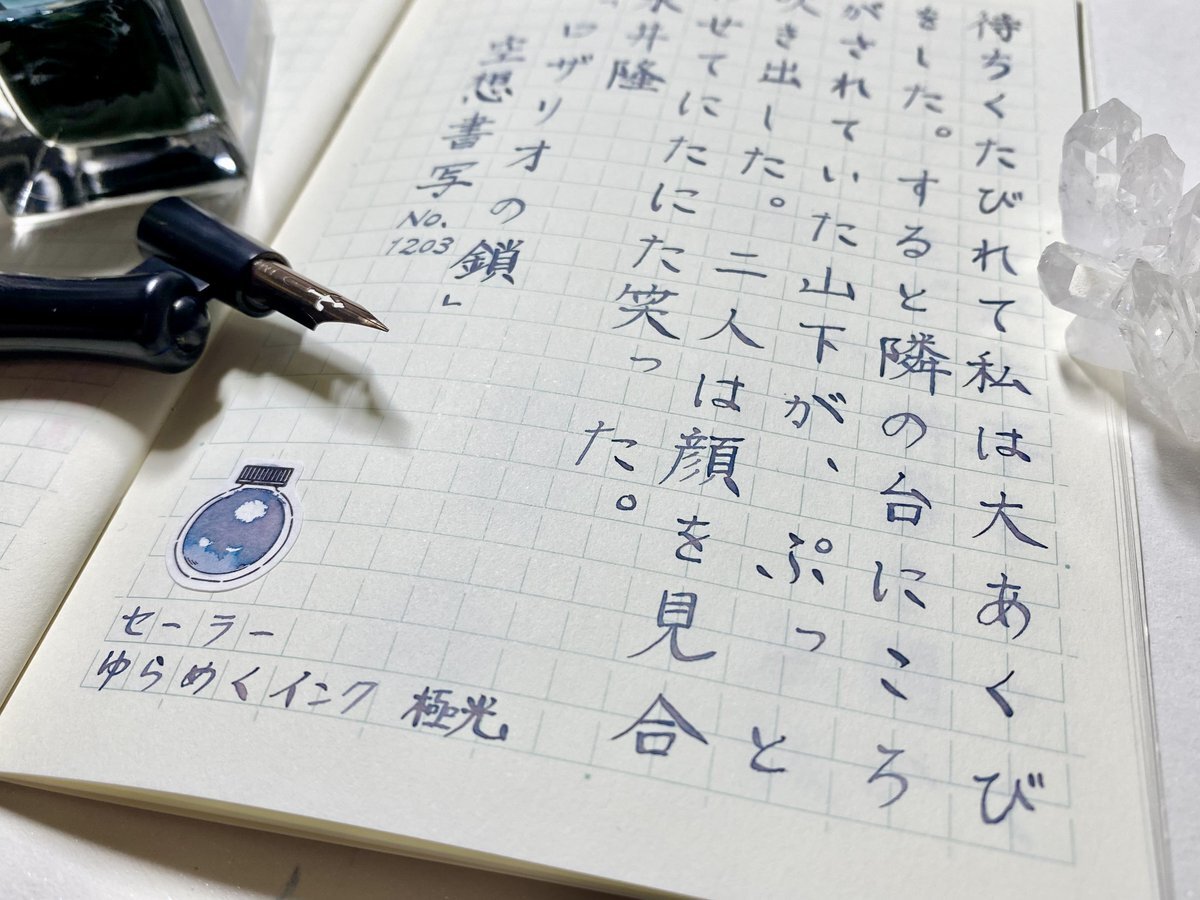 待ちくたびれて私は大あくび
をした。すると隣の台にころ
がされていた山下が、ぷっと
吹き出した。二人は顔を見合
わせてにたにた笑った。
永井隆
「ロザリオの鎖」
空想書写
No.
1203
セーラー
ゆらめくインク 極光